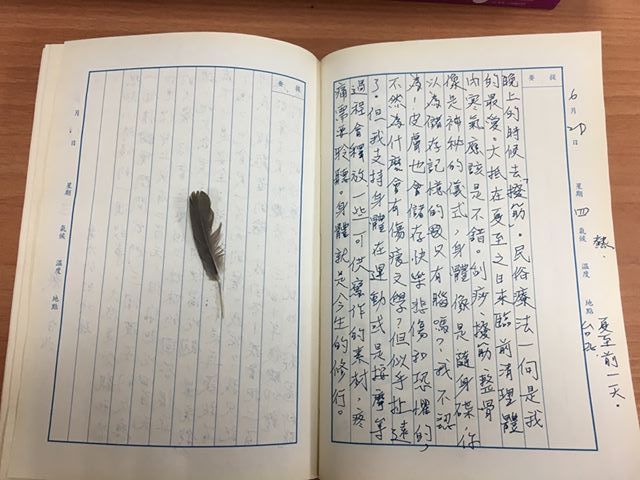 夏至前一天。
6月20日 星期 四 氣候 熱. 溫度 地點 台北
提要
晚上的時候去「撥筋」。民俗療法一向是我
的最愛,大抵在夏至之日來臨前清理體
內寒氣應該是不錯。刮痧、撥筋、整骨
像是神秘的儀式,身體像是隨身碟,你
以為儲存記憶的只有腦嗎?我不認
為!皮膚也會儲存快樂悲傷和恐懼的
不然為什麼會有傷痕文學?但似乎扯遠
了。但我支持身體在運動或是按摩等
過程會釋放一些可供寫作的素材,疼
痛需要聆聽。身體就是今生的修行。
提要
月 日 星期 氣候 溫度 地點